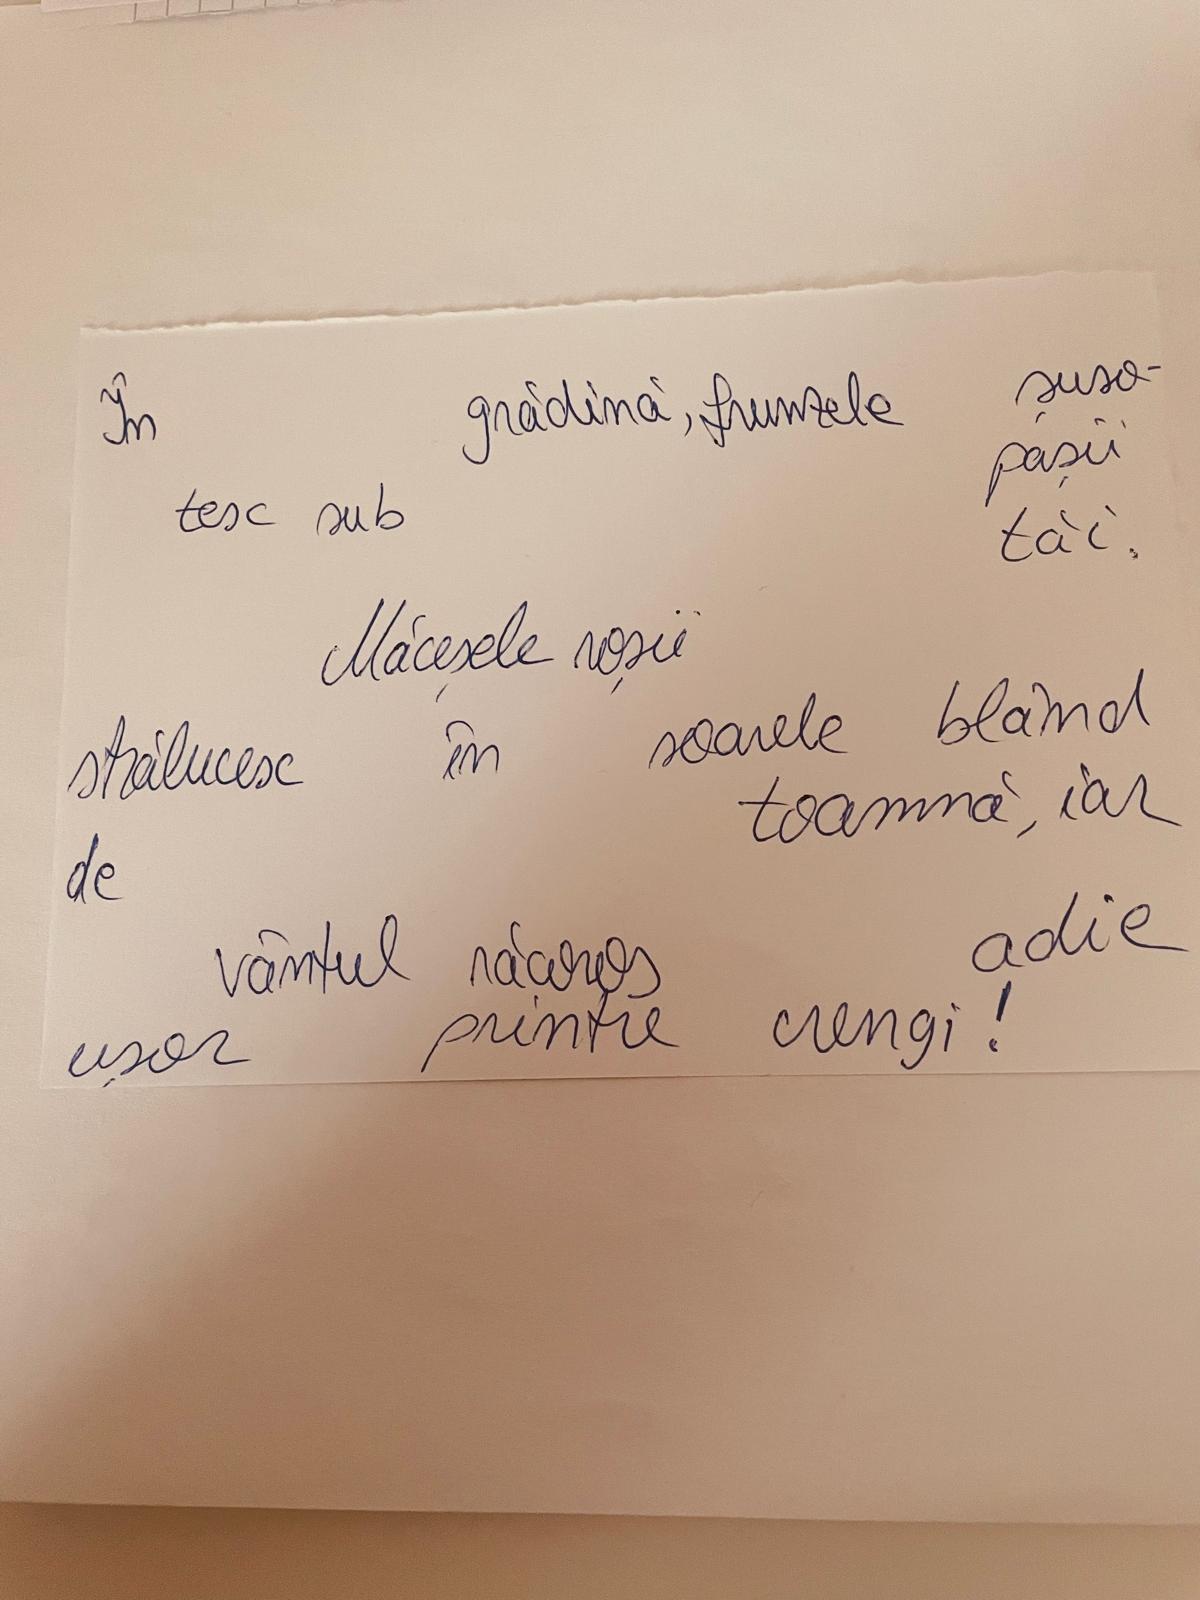 În grădină, frunzele șușo-
tesc sub pașii
tăi.
Măceșele roșii
strălucesc în soarele blând
de toamnă, iar
vântul răcoros adie
ușor printre crengi!